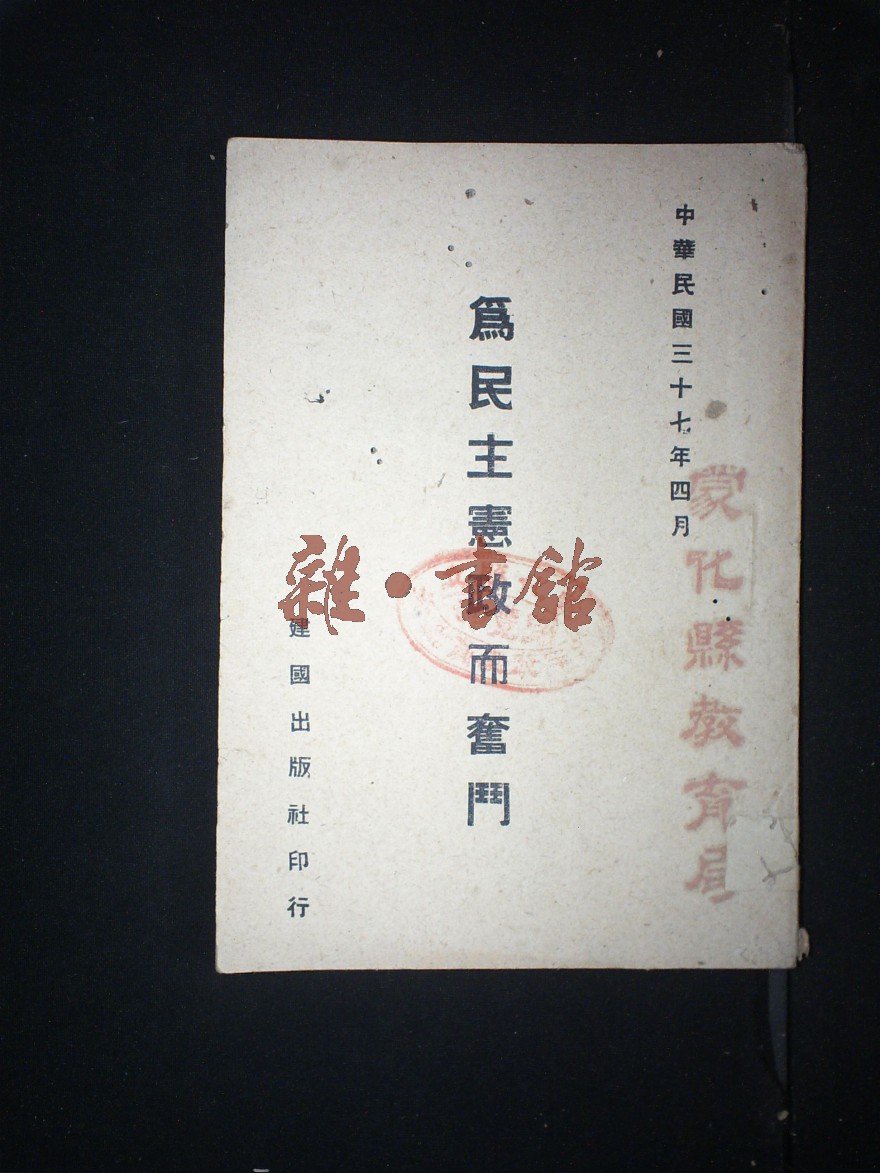 中華民國三十七年四月
蒙化縣教育局
爲民主憲政而奮鬥
建國出版社印行
雜·書館